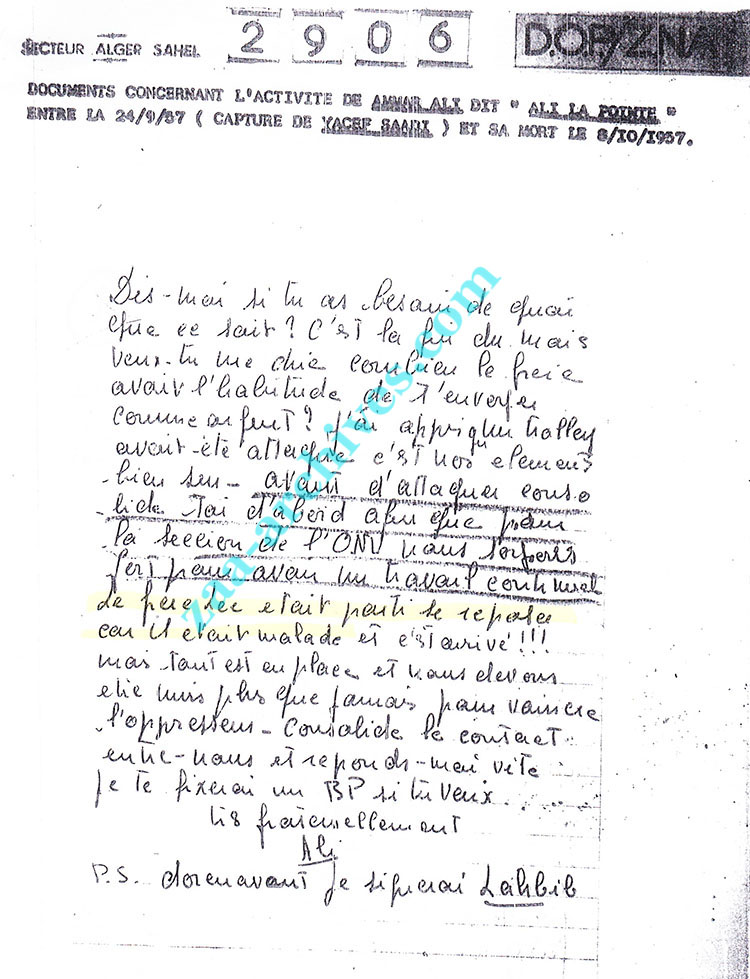 SECTEUR ALGER SAHEL
2906
D.O.P/Z.N.A
DOCUMENTS CONCERNANT L'ACTIVITE DE AMMAR ALI DIT " ALI LA POINTE "
ENTRE LA 24/9/57 ( CAPTURE DE YACEF SAADI ) ET SA MORT LE 8/10/1957.
Dis-moi si tu as besoin de quoi
que ce soit? C'est la fin du mois
veux-tu me dire combien le frere
avait l'habitude de t'envoyer
comme argent? J'ai appris qu'un trolley
avait-été attaqué c'est nos element
bien sur - avant d'attaquer conso
lide toi d'abord afin que pour
la section de l'ONU nous soyons
fort pour avoir un travail continuel
Le frere Lee etait parti se reposer
car il etait malade et c'est arrivé!!!
mais tout est en place et nous devons
etre unis plus que jamais pour vaincre
l'oppresseur - Consolide le contact
entre-nous et reponds-moi vite
Je te fixerai un BP si tu veux.....
tis fraternellement
Ali
P.S. dorenavant je signerai Lahbib
zaa-archives.com